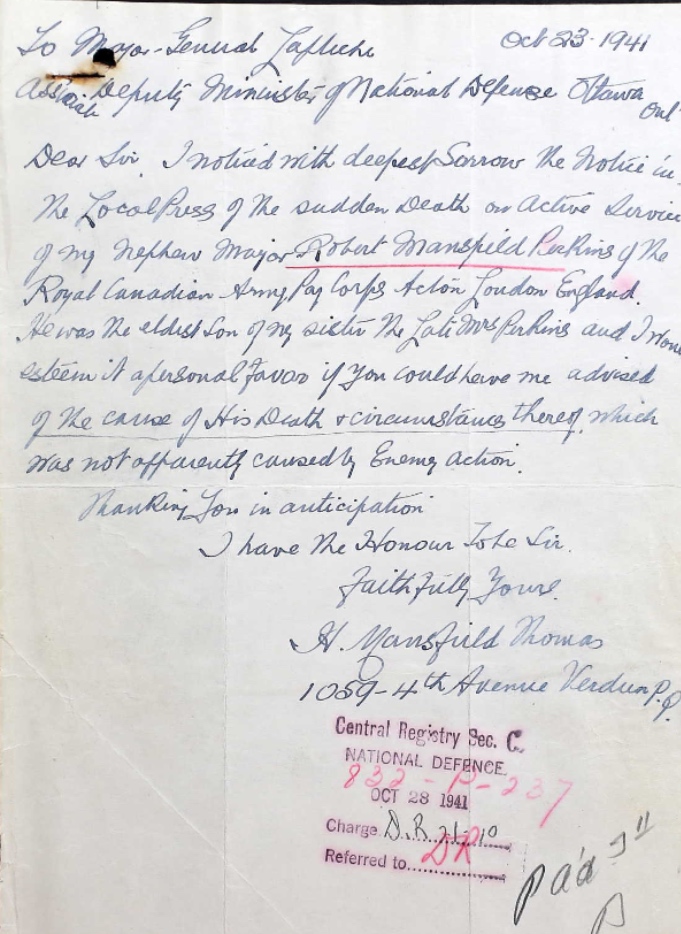 To Major-General Lafleche Oct 23. 1941
Associate Deputy Minister of National Defense Ottawa Ont
Dear Sir. I noticed with deepest Sorrow the Notice in
the Local Press of the sudden Death on Active Service
of my Nephew Major Robert Mansfield Perkins of the
Royal Canadian Army Pay Corps Acton London England.
He was the eldest Son of my sister the Late Mrs Perkins and I
esteem it a personal Favor if You could have me advised
of the cause of His Death & circumstances thereof, which
was not apparently caused by Enemy action.
Thanking You in anticipation
I have the Honour To be Sir.
Faithfully Yours.
H. Mansfield Thomas
1059-4th Avenue Verdun P.Q.
Central Registry Sec. C.
NATIONAL DEFENCE.
832-P-237
OCT 28 1941
Charge D.R.
Referred to DR